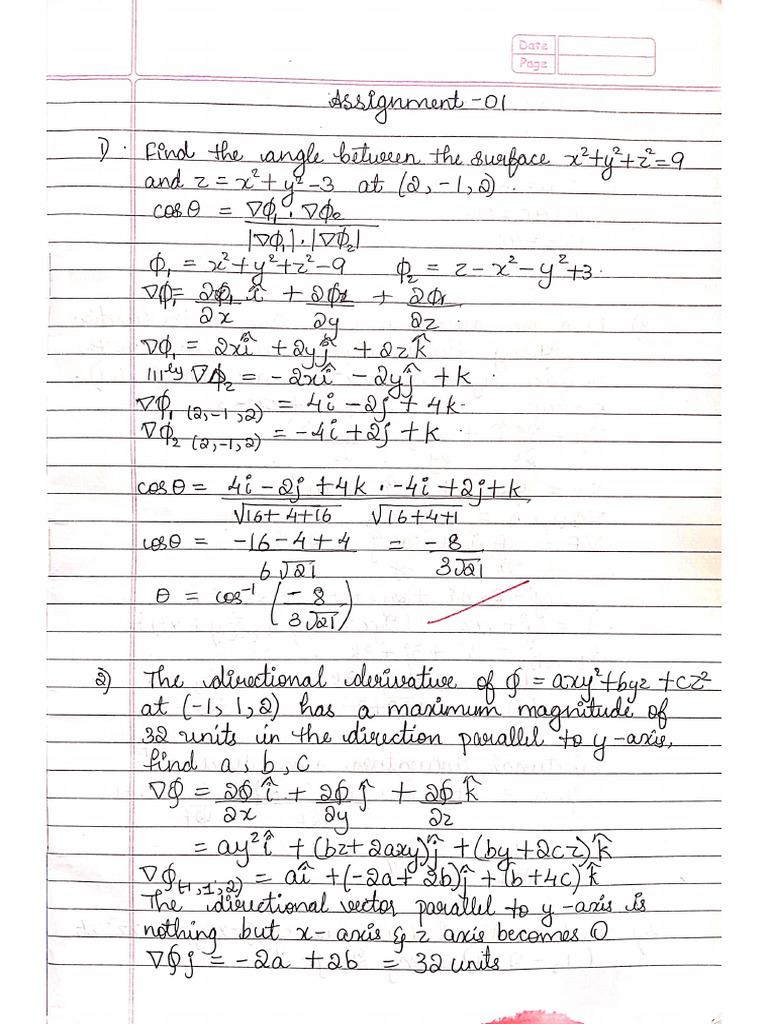 Date
Page
Assignment-01
1) Find the angle between the surface x²+y²+z²=9
and z = x²+y²-3 at (2,-1,2).
cosθ = ∇ϕ₁ . ∇ϕ₂
|∇ϕ₁|.|∇ϕ₂|
ϕ₁ = x²+y²+z²-9 ϕ₂ = z-x²-y²+3.
∇ϕ₁= ∂ϕ₁ î + ∂ϕ₁ + ∂ϕ₁
∂x ∂y ∂z.
∇ϕ₁ = 2xî +2yĵ +2zk̂
|||ly ∇ϕ₂ = -2xî -2yĵ +k.
∇ϕ₁ (2,-1,2) = 4i-2j+4k.
∇ϕ₂ (2,-1,2) = -4i+2j+k.
cosθ = 4i-2j+4k . -4i+2j+k
√16+4+16 √16+4+1
cosθ = -16-4+4 = -8
6√21 3√21
θ = cos⁻¹ (-8
3√21)
2) The directional derivative of ϕ = axy²+byz+cz²
at (-1,1,2) has a maximum magnitude of
32 units in the direction parallel to y-axis,
find a, b, c
∇ϕ = ∂ϕ î + ∂ϕ ĵ + ∂ϕ k̂
∂x ∂y ∂z
= ay²î +(bz+2axy)ĵ +(by+2cz)k̂
∇ϕ(-1,1,2) = aî +(-2a+2b)ĵ +(b+4c)k̂
The directional vector parallel to y-axis is
nothing but x-axis & z axis becomes 0
∇ϕj = -2a +2b = 32 units